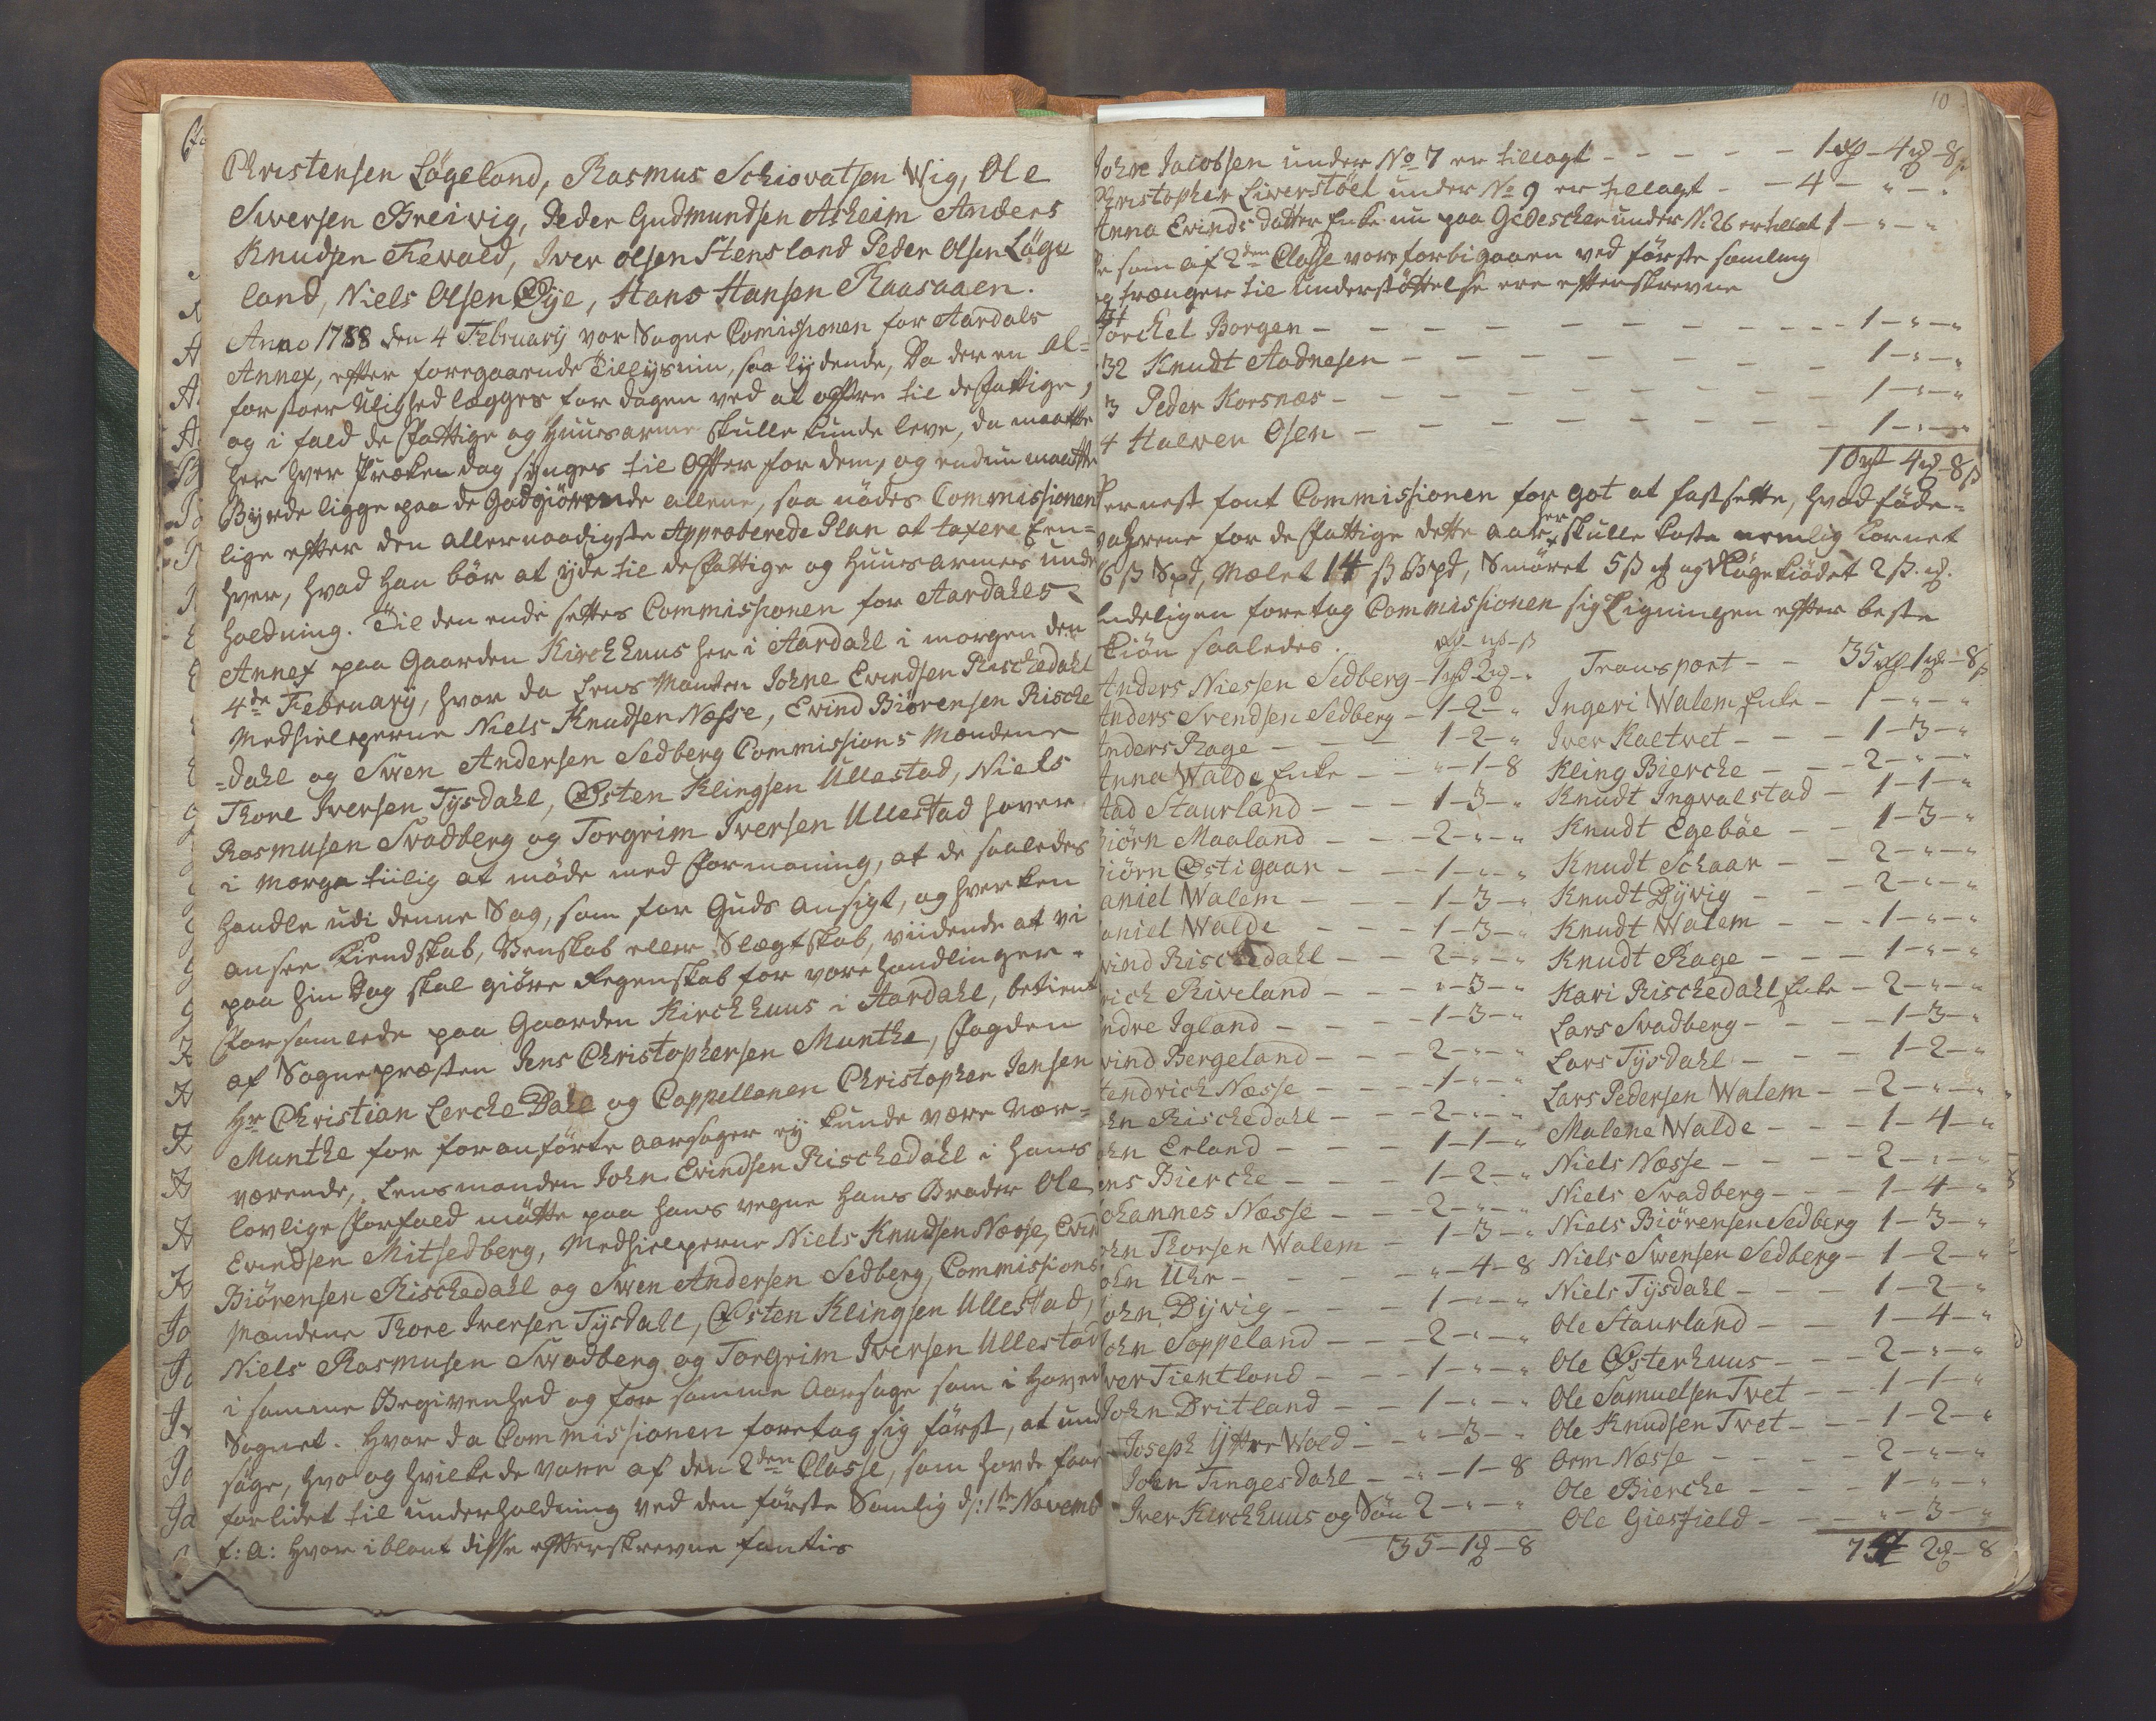 Christensen Lögeland, Rasmus Schiovatsen Wig, Ole
Swersen Breivig, Peder Gudmundsen Asheim Anders
Knudsen Tiewald, Iver olsen Stensland Peder Olsen Löge
land, Niels Olsen Øye, Hans Hansen Raasaaen.
Anno 1788 den 4 February var Sogne Comissionen for Aardals
Annex, efter foregaaende Tillysnin, saa lydende, Da der en al=
for stoer Ulighed legges for dagen ved at offre til de fattige,
og i fald de fattige og huusarme skulle kunde leve, da maatte
her hver Præken dag synges til offer for dem, og endnu maatte
Byrde ligge paa de Godgiörende allene, saa nödes Commissionen
lige efter den allernaadigste Approberede Plan at taxere Een=
hver, hvad han bör at yde til de fattige og huusarmes under
holdning. Til den ende settes Commissionen for Aardahls
Annex paa Gaarden Kirckhuus her i Aardahl i morgen den
4de February, hvor da Lens Manden Johne Evindsen Rischedahl
Medhielperne Niels Knudsen Næsse, Evind Biörensen Rische
=dahl og Swen Andersen Sedberg Commissions Mændene
Thore Iversen Tysdahl, Østen Klingsen Ullestad, Niels
Rasmusen Svadberg og Torgrim Iversen Ullestad haver
i Morgen tiilig at möde med Formaning, at de saaledes
handle udi denne Sag, som for Guds ansigt, og hverken
ansee Fiendskab, Venskab eller Slægtskab, viidende at vi
paa hin Dag skal giöre Regenskab for vore handlinger.
Forsamlede paa Gaarden Kirckhuus i Aardahl, betient
af Sognepræsten Jens Christophersen Munthe, Fogden
Hr Christian Lerche Dahl og Cappellanen Christopher Jensen
Munthe for foranförte aarsager ey kunde være nær=
værende, Lensmanden John Evindsen Rischedahl i hans
lovlige Forfald mötte paa hans vegne hans Broder Ole
Evindsen Mitsedberg, Medhielperne Niels Knudsen Næsse, Evind
Biörensen Rischedahl og Swen Andersen Sedberg, Commissions
Mændene Thore Iversen Tysdahl, Østen Klingsen Ullestad,
Niels Rasmusen Swadberg og Torgrim Iversen Ullestad
i samme Begivenhed og for samme Aarsage som i Hoved
Sognet. Hvor da Commissionen foretog sig först, at und
söge, hvo og hvilke de vare af den 2den Classe, som havde faaet
forlidet til underholdning ved den förste Samlig d: 1te Novemb
f: a: hvor iblant disse efterskrevne fantis
10
Johne Jacobsen under No 7 er tillagt - - - - - 1 - 4 - 8
Christopher Liverstöel under No 9 er tillagt - - 4 - " - "
Anna Evinds datter Enke nu paa Gedeschee under N: 26 er tillat 1 - " - "
som af 2den Classe vare forbigaaen ved förste samling
og trænger til understöttelse ere efterskrevne
31 Torckel Borgen - - - - - - - - 1 - " - "
32 Knudt Aadnesen - - - - - - - 1 - " - "
3 Peder Korsnæs - - - - - - - - 1 - " - "
4 Halwer Osen - - - - - - - - 1 - " - "
10 4 - 8
ernest fant Commissionen for got at fastsette, hvad föde=
vahrene for de fattige dette aar her skulle koste nemlig Kornet
6 ß Spd, Mælet 14 ß Bpd, Smöret 5 ß og Rögekiödet 2 ß
ndeligen foretog Commissionen sig Ligningen efter beste
kiön saaledes.
Anders Niessen Sedberg - 1 - 2 - "
Anders Svendsen Sedberg - 1 - 2 - "
Anders Rage - - - 1 - 2 - "
Anna Walde Enke - - " - 1 - 8
Aad Staurland - - - 1 - 3 - "
Biörn Maaland - - - 2 - " - "
Biörn Østigaar - - - 1 - " - "
Daniel Walem - - - 1 - 3 - "
Daniel Walde - - - 1 - 3 - "
Evind Rischedahl - - 2 - " - "
Erich Riveland - - - " - 3 - "
Endre Igland - - - 1 - 3 - "
Evind Bergeland - - - 2 - " - "
Hendrich Næsse - - - 1 - " - "
John Rischedahl - - - 2 - " - "
John Erland - - - 1 - 1 - "
Jens Biercke - - - 1 - 2 - "
Johannes Næsse - - - 2 - " - "
John Thorsen Walem - 1 - 3 - "
John Uhr - - - " - 4 - 8
John Dyvig - - - 1 - " - "
John Soppeland - - - 2 - " - "
Iver Tientland - - - 1 - " - "
John Britland - - - 1 - " - "
Joseph Yttre Wold - - " - 3 - "
John Tingesdahl - - " - 1 - 8
Iver Kirckhuus og Sön 2 - " - "
35 - 1 - 8
Transport - - 35 1 - 8
Ingeri Walem Enke - 1 - " - "
Iver Kaltvet - - - 1 - 3 - "
Kling Biercke - - - 2 - " - "
Knudt Ingvalstad - 1 - 1 - "
Knudt Egeböe - - 1 - 3 - "
Knudt Schaar - - 2 - " - "
Knudt Dyvig - - - 2 - " - "
Knudt Walem - - - 1 - " - "
Knudt Rage - - - 1 - " - "
Kari Rischedahl Enke - 2 - " - "
Lars Svadberg - - - 1 - 3 - "
Lars Tysdahl - - - 1 - 2 - "
Lars Pedersen Walem - - 2 - " - "
Malene Walde - - - 1 - 4 - "
Niels Næsse - - - 2 - " - "
Niels Svadberg - - - 1 - 4 - "
Niels Biörensen Sedberg 1 - 3 - "
Niels Swensen Sedberg - 1 - 2 - "
Niels Tysdahl - - - 1 - 2 - "
Ole Staurland - - 1 - 4 - "
Ole Østerhuus - - - 2 - " - "
Ole Samuelsen Tvet - - 1 - 1 - "
Ole Knudsen Tvet - - 1 - 2 - "
Orm Næsse - - - 2 - " - "
Ole Biercke - - - 1 - " - "
Ole Giesfield - - - " - 3 - "
2 - 8